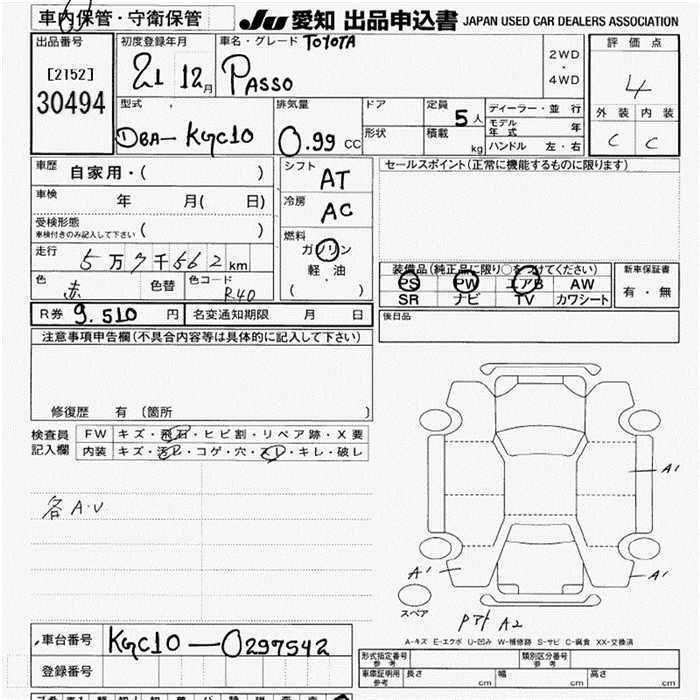 車内保管・守衛保管
JU 愛知 出品申込書 JAPAN USED CAR DEALERS ASSOCIATION
出品番号
[2152]
30494
初度登録年月
21 12月
車名・グレード TOYOTA
PASSO
2WD
・
4WD
評価点
4
外装 内装
C C
型式
DBA- KGC10
排気量
0.99 CC
ドア
形状
定員
5人
積載
kg
ディーラー・並行
モデル年式 年
ハンドル 左・右
車歴 自家用・( )
車検 年 月( 日)
受検形態
車検付きのみ記入して下さい ( )
走行 5万7千562km
色 赤 色替 色コード R40
シフト
AT
冷房
AC
燃料
ガソリン
軽・油
( )
セールスポイント(正常に機能するものに限ります)
装備品(純正品に限り○をつけてください)
PS PW エアB AW
SR ナビ TV カワシート
新車保証書
有・無
後日品
R券 9.510円 名変通知期限 月 日
注意事項申告欄(不具合内容等は具体的に記入して下さい)
修復歴 有 〔箇所 〕
検査員
記入欄
FW キズ・飛石・ヒビ割・リペア跡・X要
内装 キズ・汚レ・コゲ・穴・スレ・キレ・破レ
各A・U
A1
A1
A1
スペア
A2
A-キズ E-エクボ U-凹み W-補修跡 S-サビ C-腐食 XX-交換済
車台番号 KGC10-0297542
登録番号
形式指定番号
参考
類別区分番号
参考
車庫証明用
参考
長さ cm 幅 cm 高さ cm